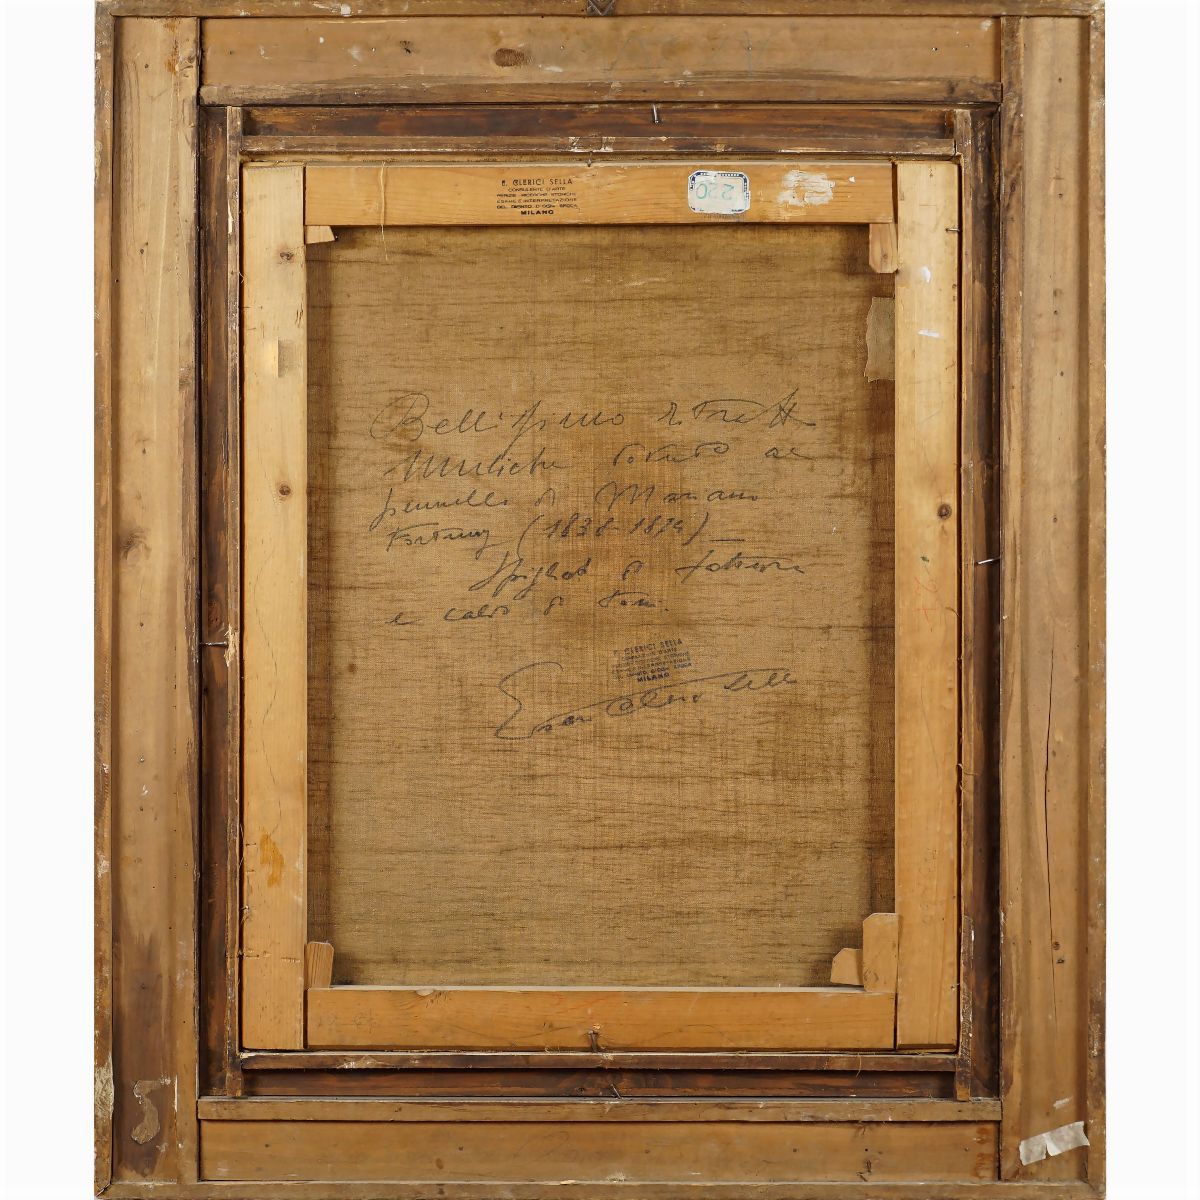 E. CLERICI SELLA
CONSULENTE D'ARTE
PERIZIE RICERCHE STORICHE
ESAME E INTERPRETAZIONE
DEL DIPINTO D'OGNI EPOCA
MILANO
220
Bellissimo ritratto
Muliebre dovuto al
pennello di Mariano
Fortuny (1838-1874)
di
e caldo di toni.
E. CLERICI SELLA
MILANO
Clerici Sella